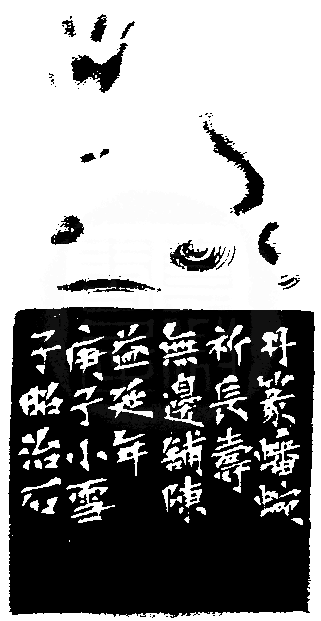 丹篆蟠蜿
祈長壽
無邊舖陳
益延年
庚子小雪
子昭治石